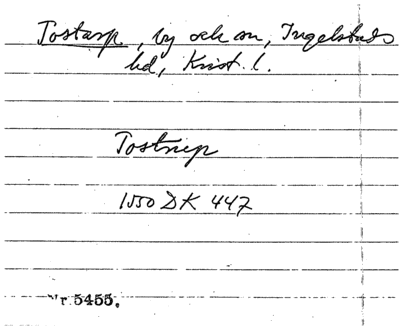 Tostarp, by och sn, Ingelstads
hd, Krist. l.
Tostrup
1550 DK 447
Nr. 5455.